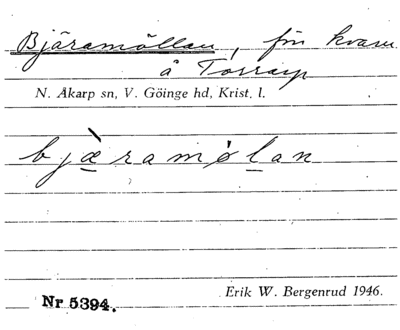 Bjäramöllan, fin kvarn
å Torrarp
N. Åkarp sn, V. Göinge hd, Krist. l.
bjæ̀ramølan
Erik W. Bergenrud 1946.
Nr 5394.